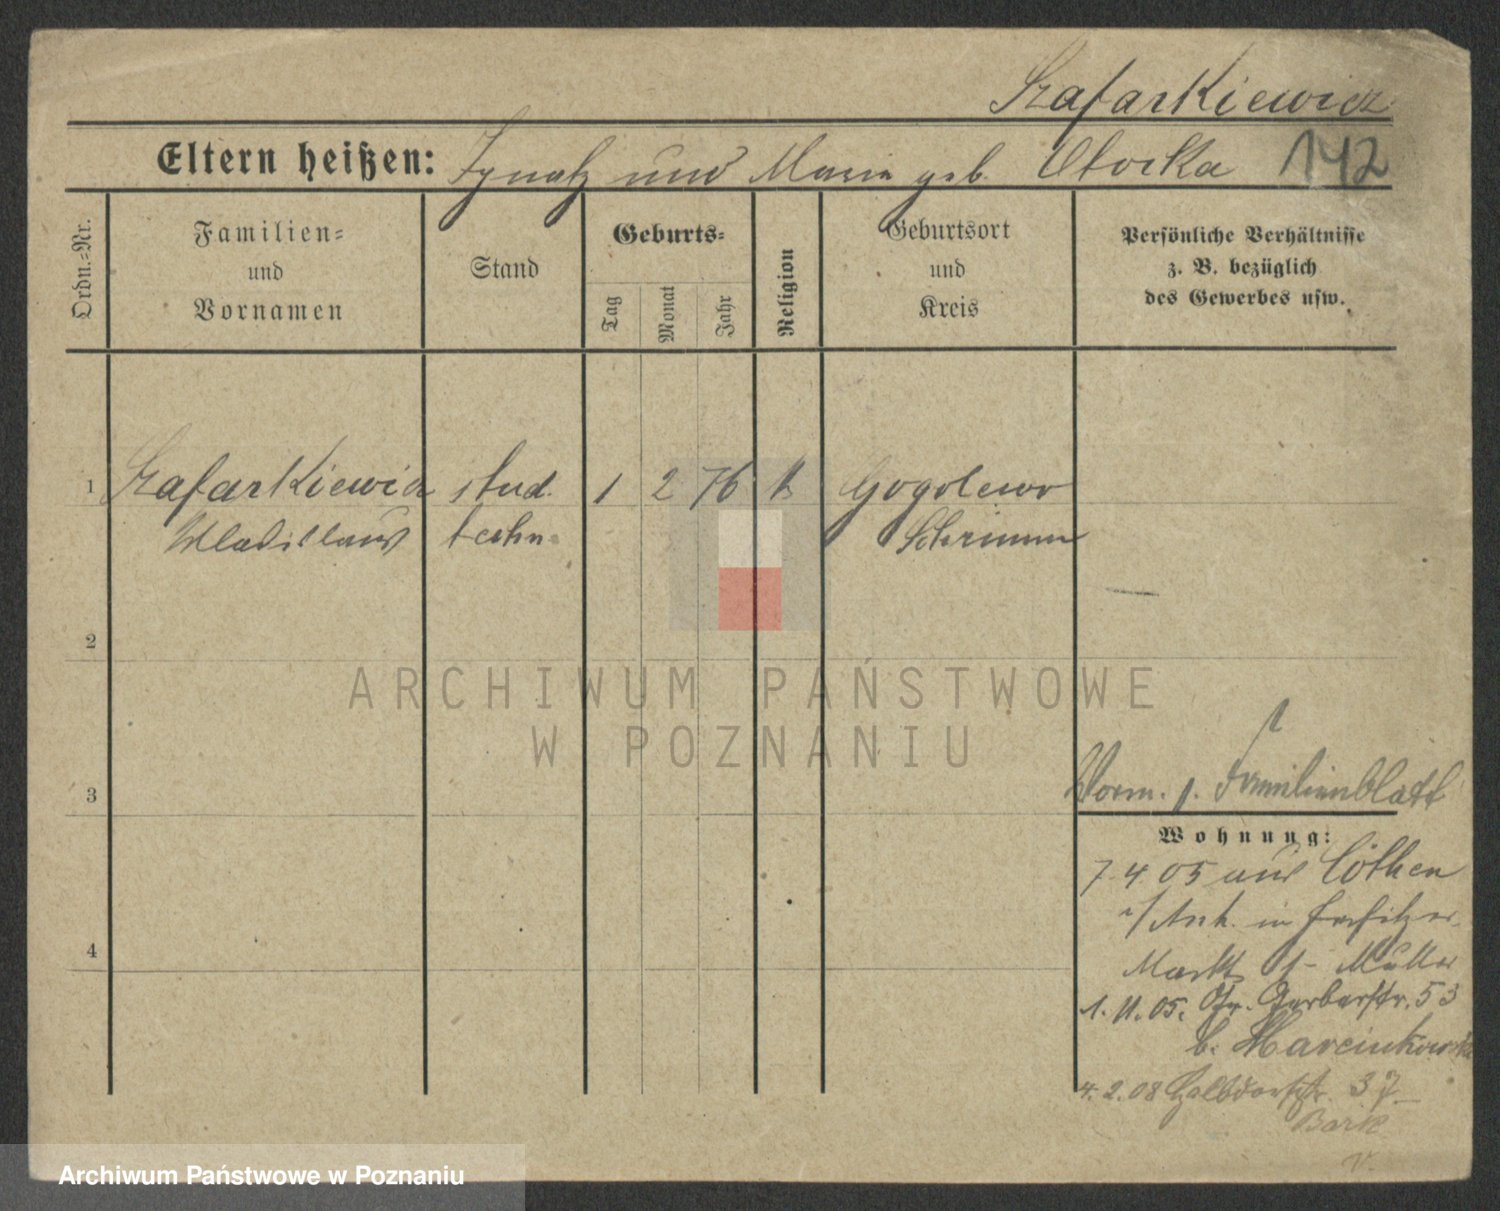 Szafarkiewicz
Eltern heißen: Ignatz und Marie geb. Otocka 142
Ordn.-Nr.
Familien-
und
Vornamen
Stand
Geburts-
Tag
Monat
Jahr
Religion
Geburtsort
und
Kreis
Persönliche Verhältnisse
z. B. bezüglich
des Gewerbes usw.
1 Szafarkiewicz stud. 1 2 76 k Gogolewo
Wladislaus techn. Schrimm
2
3
Vorm. s. Familienblatt
Wohnung:
7 4 05 aus Cöthen
i/Anh. in
Markt 1 Müller
1. 11. 05. Gr. Gerberstr. 53
b. Marcinkowska
4
4. 2. 08 Halbdorfstr. 37
Bark
ARCHIWUM PAŃSTWOWE
W POZNANIU
Archiwum Państwowe w Poznaniu